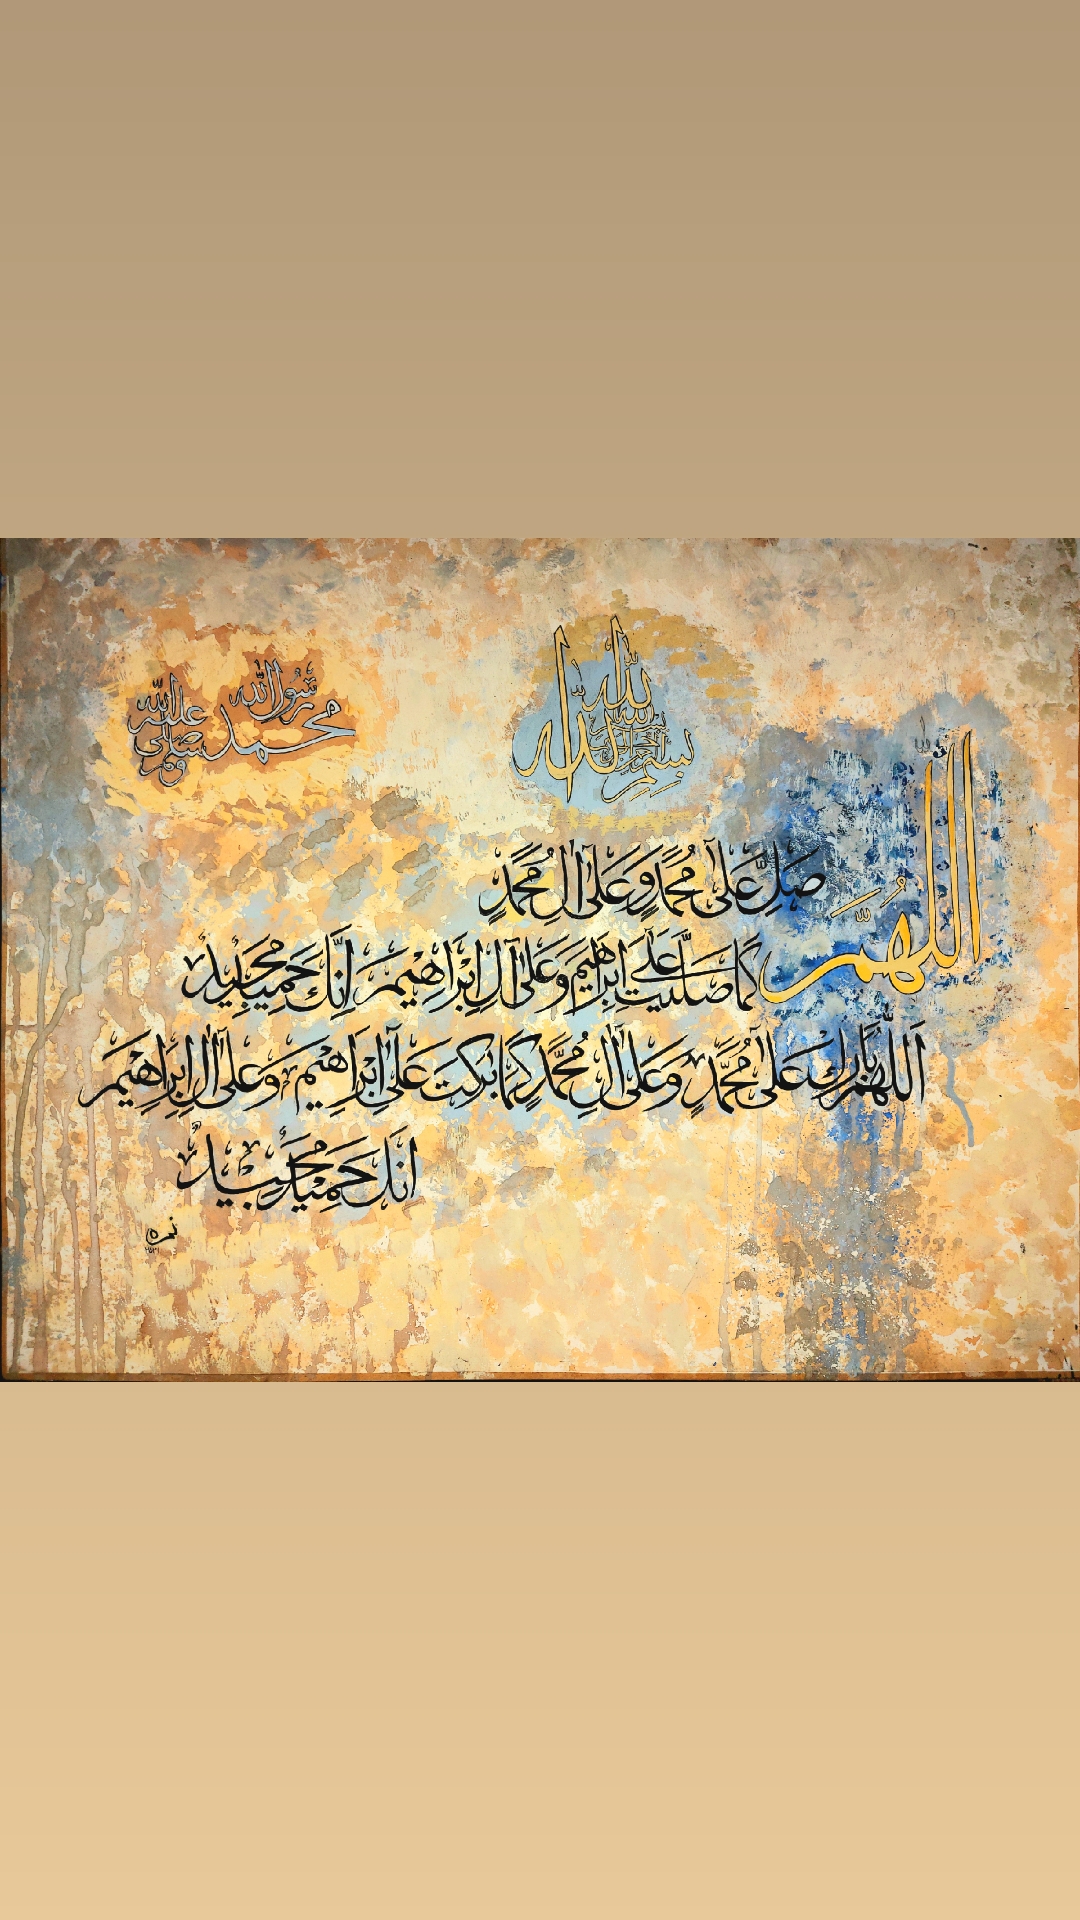 بسم الله الرحمن الرحيم
محمد رسول الله صلى الله عليه وسلم
اللهم
صَلِّ عَلىٰ مُحَمَّدٍ وَعَلىٰ آلِ مُحَمَّدٍ
كَمَا صَلَّيْتَ عَلىٰ اِبْرَاهِيْمَ وَعَلىٰ آلِ اِبْرَاهِيْمَ اِنَّكَ حَمِيْدٌ مَّجِيْدٌ
اَللّٰهُمَّ بَارِكْ عَلىٰ مُحَمَّدٍ وَعَلىٰ آلِ مُحَمَّدٍ كَمَا بَارَكْتَ عَلىٰ اِبْرَاهِيْمَ وَعَلىٰ آلِ اِبْرَاهِيْمَ
اِنَّكَ حَمِيْدٌ مَّجِيْدٌ